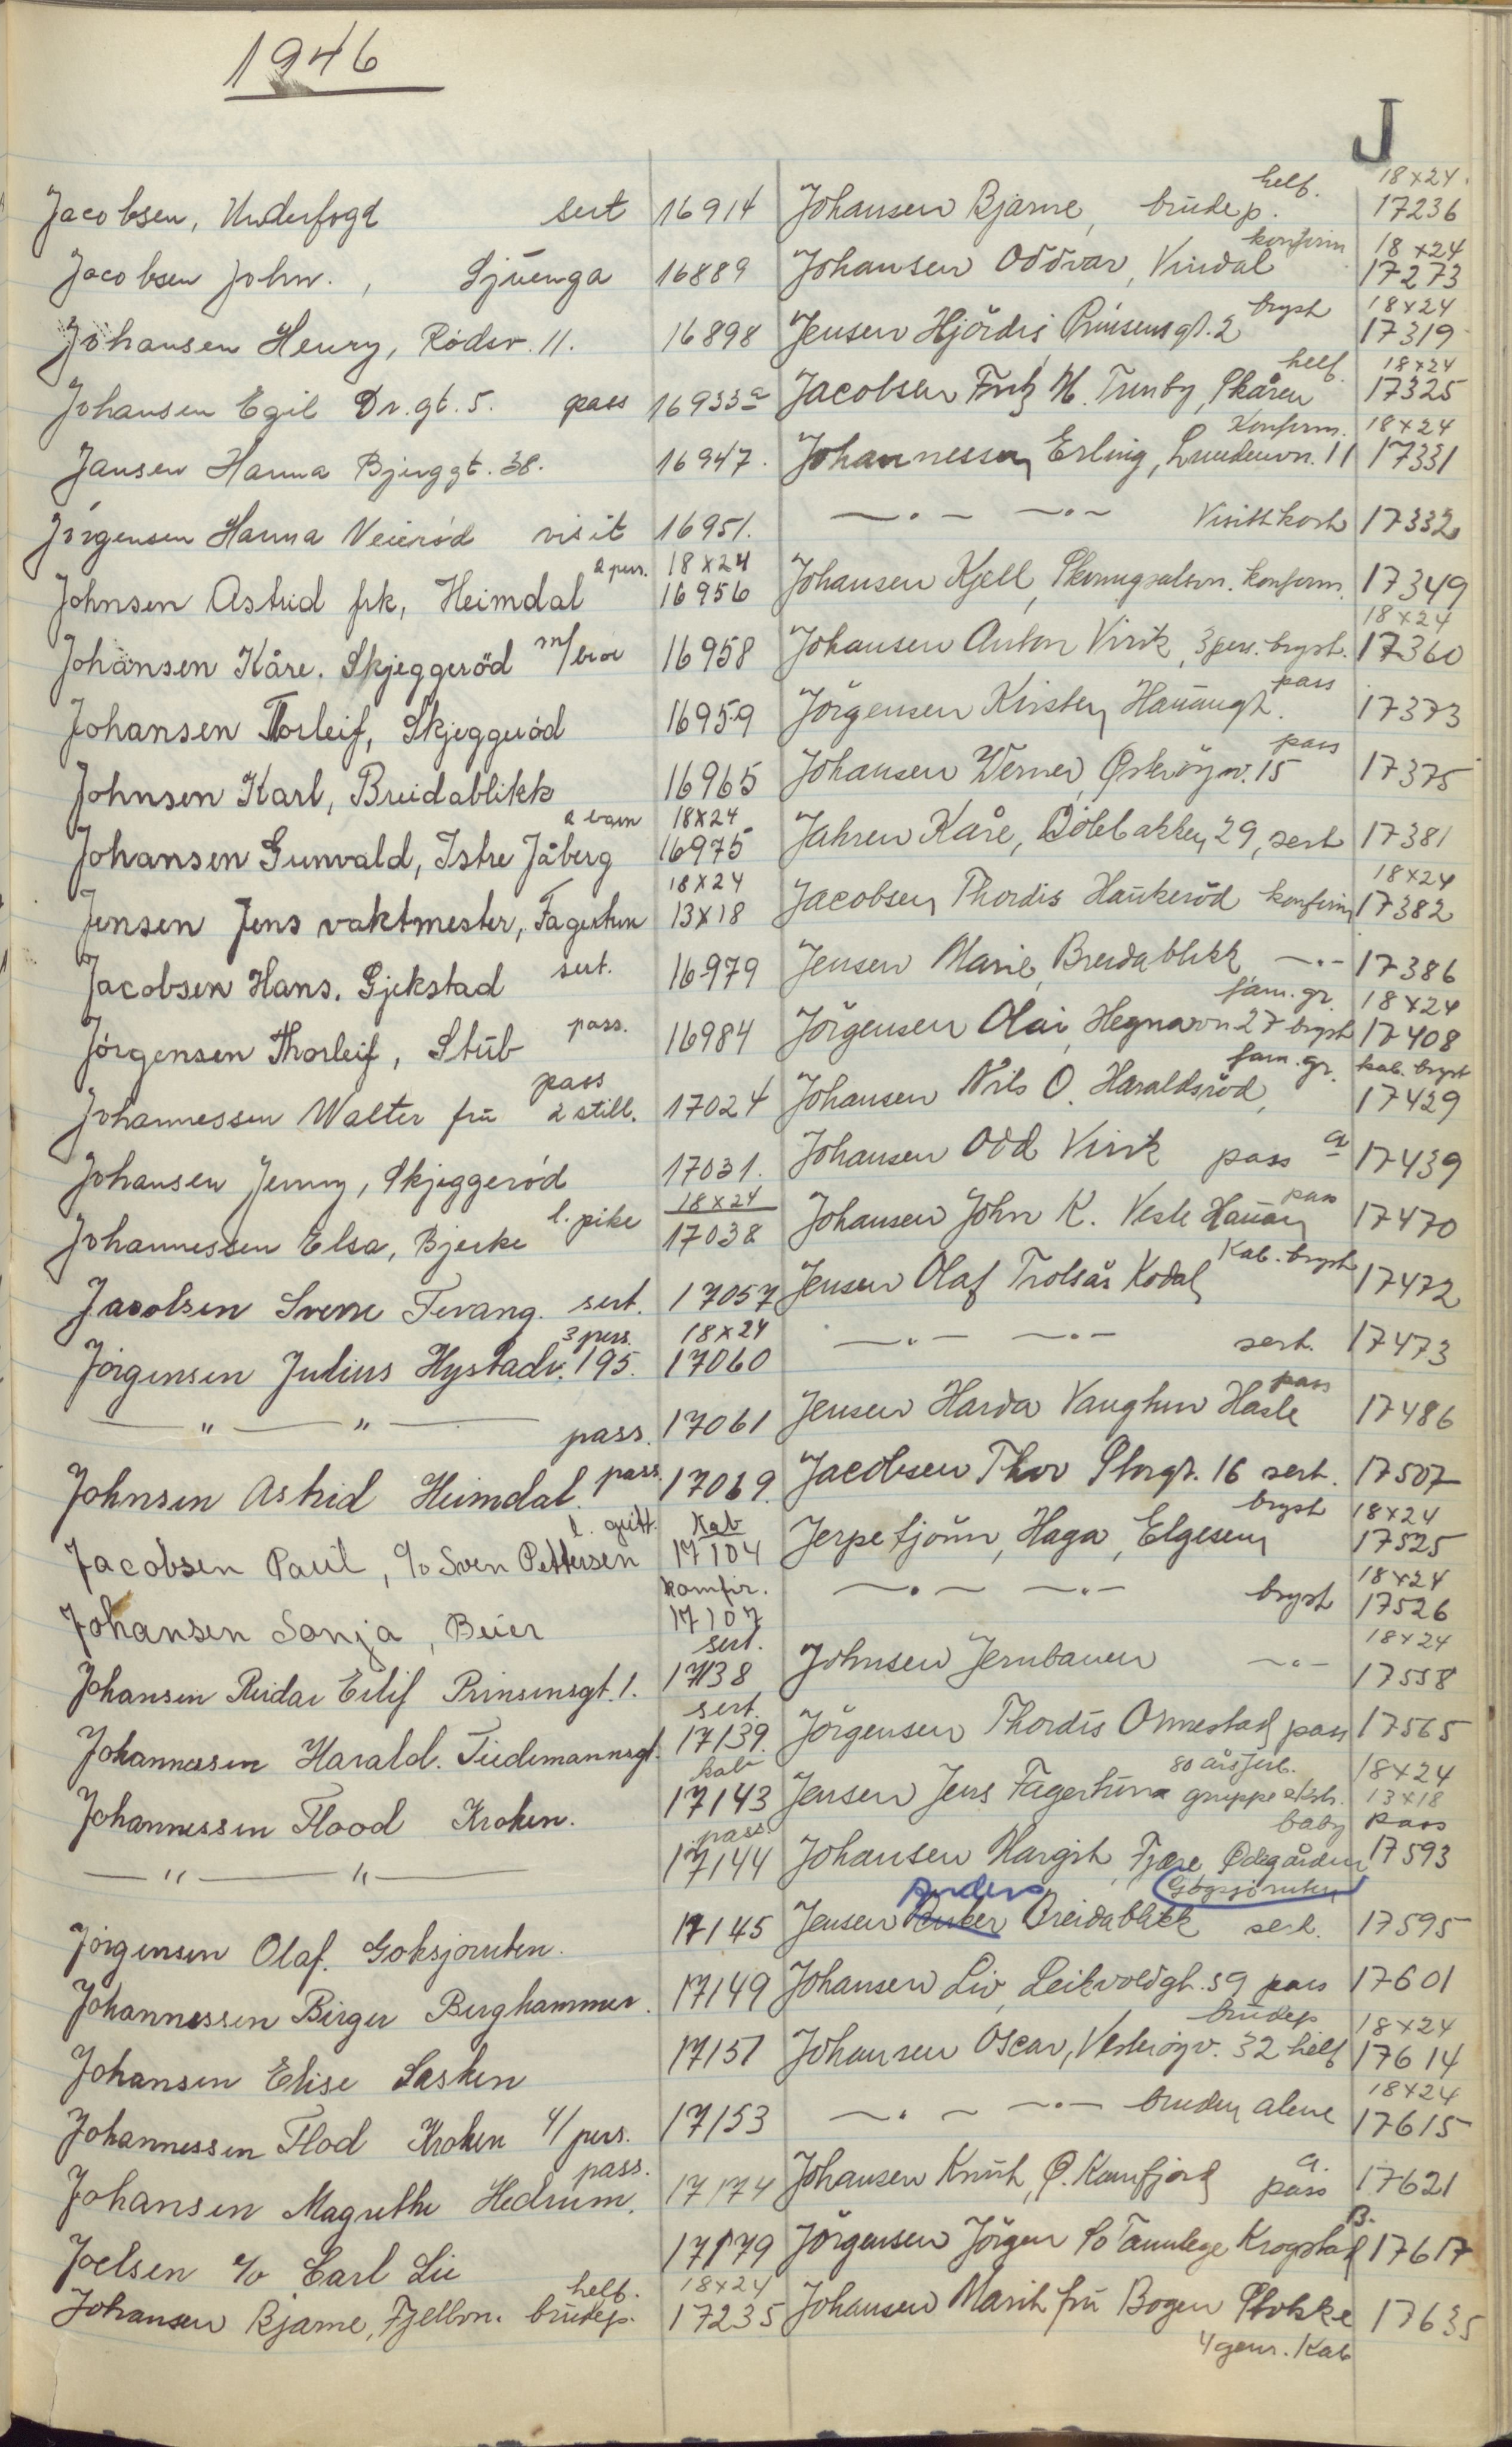 1946
J
Jacobsen, Underfogd sert 16914
Jacobsen John. , Sjuenga 16889
Johansen Henry, Rödsv. 11. 16898
Johansen Egil Dr.gt. 5. pass 16933a
Jansen Hanna Bjerggt. 38. 16947.
Jörgensen Hanna Veieröd visit 16951.
Johnsen Astrid frk, Heimdal 2 pers. 18x24 16956
Johansen Kåre. Skjeggeröd m/bror 16958
Johansen Torleif, Skjeggeröd 16959
Johnsen Karl, Breidablikk 16965
Johansen Gunvald, Istre Jåberg 2 barn 18x24 16975
Jensen Jens vaktmester, Fagertun 18x24 13x18
Jacobsen Hans. Gjekstad sert. 16979
Jörgensen Thorleif, Stub pass. 16984
Johannessen Walter fru pass 2 still. 17024
Johansen Jenny, Skjeggeröd 17031.
Johannessen Elsa, Bjerke l. pike 18x24 17038
Jacobsen Sverre Tevang. sert. 17057
Jörgensen Julius Hystadv. 195. 3 pers. 18x24 17060
— " — " — pass. 17061
Johnsen Astrid Heimdal. pass. 17069.
Jacobsen Paul, c/o Sven Pettersen l. gutt. Kab 17104
Johansen Sonja, Beier komfir. 17107
Johansen Reidar Eilif Prinsensgt. 1. sert. 17138
Johannessen Harald. Tiedemannsgt. sert. 17139.
Johannessen Flood Kroken. kab 17143
— " — " — pass. 17144
Jörgensen Olaf. Goksjoruten. 17145
Johannessen Birger Berghammer. 17149
Johansen Elise Lasken 17151
Johannessen Flod Kroken 4/pers. 17153
Johansen Magrethe Hedrum. pass. 17174
Joelsen c/o Carl Lie 17179
Johansen Bjarne, Fjellvn. brudep. helf. 18x24 17235
Johansen Bjarne, brudep. helf. 18x24. 17236
Johansen Oddvar, Vindal konfirm 18x24 17273
Jensen Hjördis Prinsensgt. 2 bryst 18x24 17319
Jacobsen Fritz M. Trenby, Skåren helf. 18x24 17325
Johannessen Erling, Lundenvn. 11 Konfirm. 18x24 17331
— . — — . — Visittkort 17332
Johansen Kjell, konfirm. 17349
Johansen Anton Virik, 3 pers. bryst. 18x24 17360
Jörgensen Kirsten Haugngt. pass 17373
Johansen Werner, Österöyv. 15 pass 17375
Jahren Kåre, Dölebakken 29, sert 17381
Jacobsen Thordis Haukeröd konfirm 18x24 17382
Jensen Marie, Breidablikk — . — 17386
Jörgensen Olai, Hegnavn 27 bryst fam. gr. 18x24 17408
Johansen Nils O. Haraldsröd, fam. gr. kab. bryst 17429
Johansen Odd Virik pass a 17439
Johansen John K. Vesle Hauan pass 17470
Jensen Olaf Trolsås Kodal Kab. bryst 17472
— . — — . — sert. 17473
Jensen Harda Vaughun Hasle pass 17486
Jacobsen Thor Storgt. 16 sert. 17507
Jerpetjönn, Haga, Elgesem bryst 18x24 17525
— . — — . — bryst 18x24 17526
Johnsen Jernbanen — . — 18x24 17558
Jörgensen Thordis Ormestad pass 17565
Jensen Jens Fagertun gruppe ekstr. 80 års jub. 18x24 13x18
Johansen Margit, Fjære, Ödegården baby pass 17593
Gogsjöruten
Jensen Anders Breidablikk sert. 17595
Johansen Liv, Leikvoldgt. 59 pass 17601
Johansen Oscar, Vesteröyv. 32 helf brudep 18x24 17614
— . — — . — bruden alene 18x24 17615
Johansen Knut, Ö. Kamfjord pass a. 17621
Jörgensen Jörgen c/o Tannlege Krogstad B. 17617
Johansen Marit fru Bogen Stokke 17635
4 gens. Kab